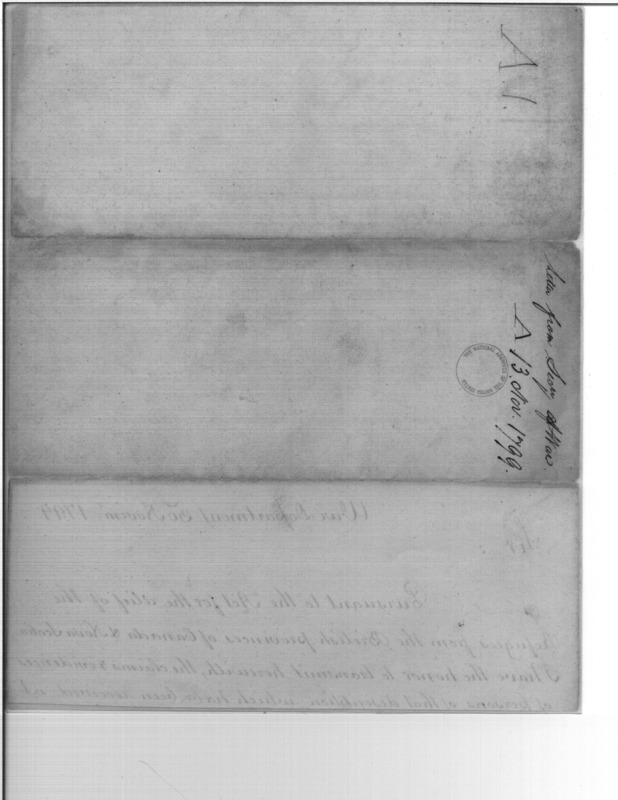 A
Letter from Secy of War.
A 13. Nov. 1799.
THE NATIONAL ARCHIVES OF THE UNITED STATES
War Department Novemr 1799
Sir,
Pursuant to the Act for the relief of the
Refugees from the British provinces of Canada & Nova Scotia
I have the honor to transmit herewith, the claims & evidences
of persons of that description which have been received at